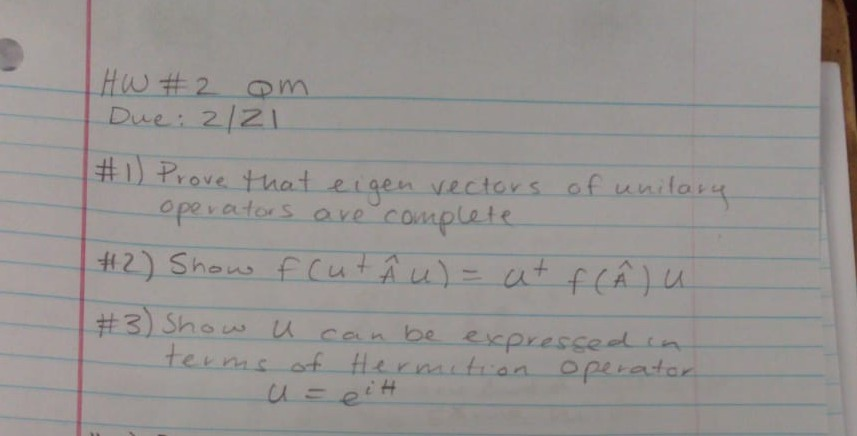 HW #2 QM
Due: 2/21
#1) Prove that eigen vectors of unitary
operators are complete
#2) Show f(u† Â u) = u† f(Â) u
#3) Show u can be expressed in
terms of Hermition operator
u = e^{iH}